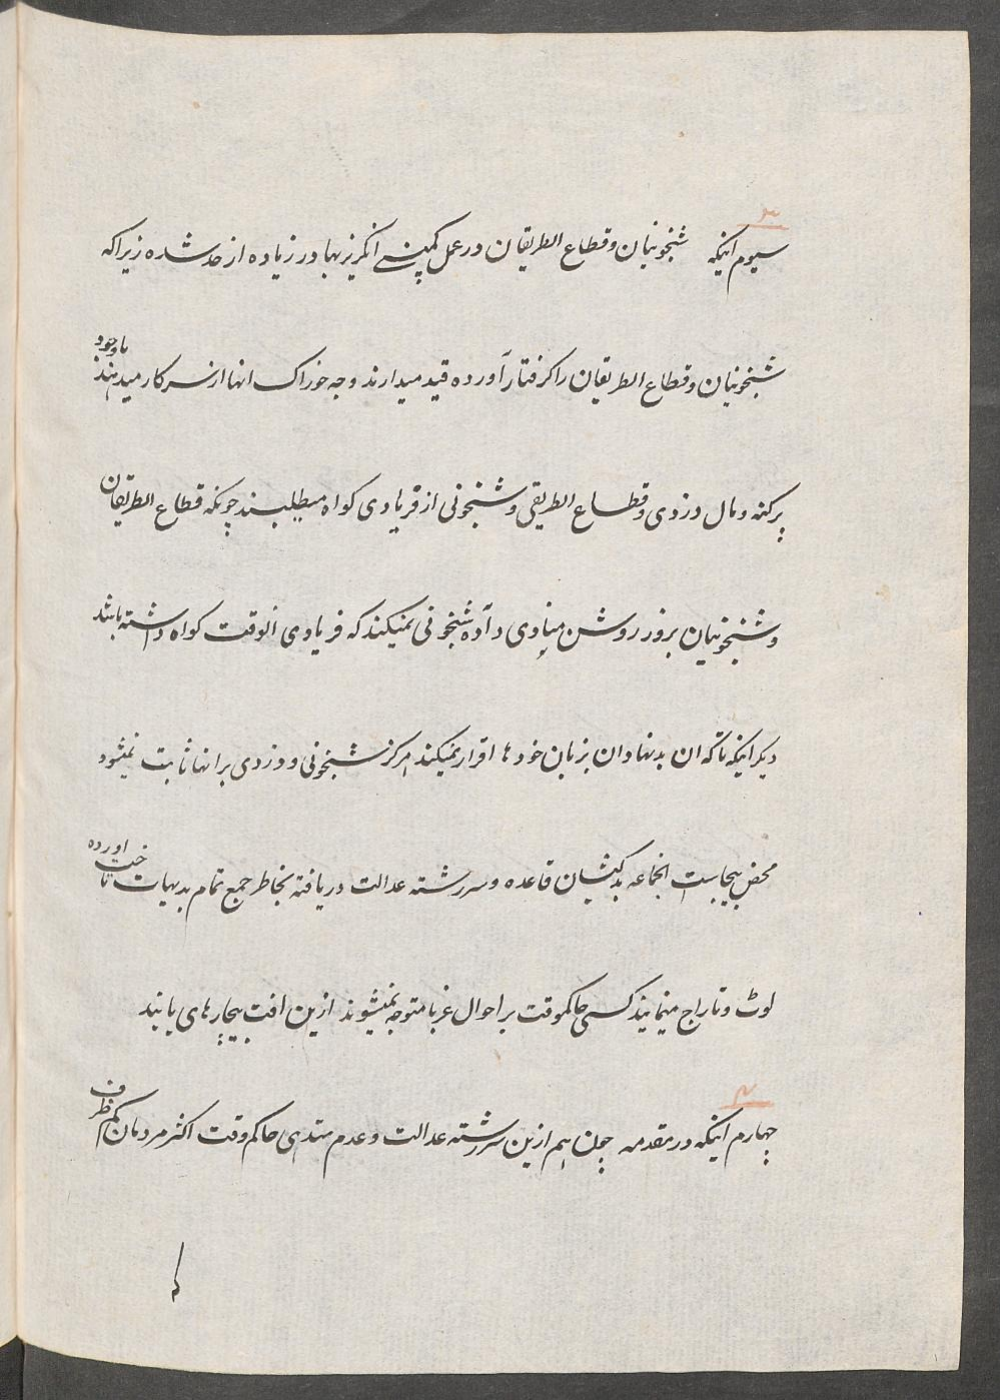 ۳
سیوم اینکه شبخونیان و قطاع الطریقان در عمل کمپنی انکریز بهادر زیاده از حد شده زیراکه
شبخونیان و قطاع الطریقان را کرفتار آورده قید میدارند وجه خوراک انها از سرکار میدهند باوجود
پرکنه و مال دزدی و قطاع الطریقی و شبخونی از فریادی کواه میطلبند چونکه قطاع الطریقان
و شبخونیان بروز روشن منادی داده شبخونی نمیکند که فریادی انوقت کواه داشته باشد
دیکر اینکه تا که ان بدنهادان بزبان خودها اقرار نمیکند هرکز شبخونی و دزدی بر انها ثابت نمیشود
محض بیجاست انجماعه بدکیشان قاعده و سررشته عدالت دریافته بخاطر جمع تمام بدیهات تاخت اورده
لوٹ و تاراج مینمایند کسی حاکموقت بر احوال غربا متوجه نمیشوند ازین افت بیچارهای یابند
۴
چهارم اینکه در مقدمه هم ازین سررشته عدالت و عدم حاکم وقت اکثر مردمان کم ظرف